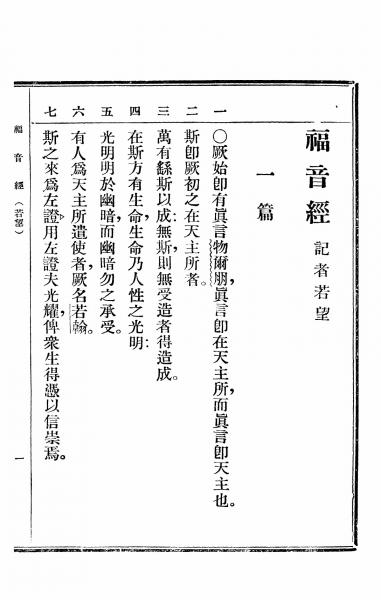 福音經 記者若望
一篇
一 ○厥始卽有眞言物爾朋,眞言卽在天主所,而眞言卽天主也。
二 斯卽厥初之在天主所者。
三 萬有繇斯以成:無斯,則無受造者得造成。
四 在斯方有生命,生命乃人性之光明:
五 光明明於幽暗,而幽暗勿之承受。
六 有人爲天主所遣使者,厥名若翰。
七 斯之來爲左證,用左證夫光耀,俾衆生得憑以信崇焉。
福音經(若望) 一